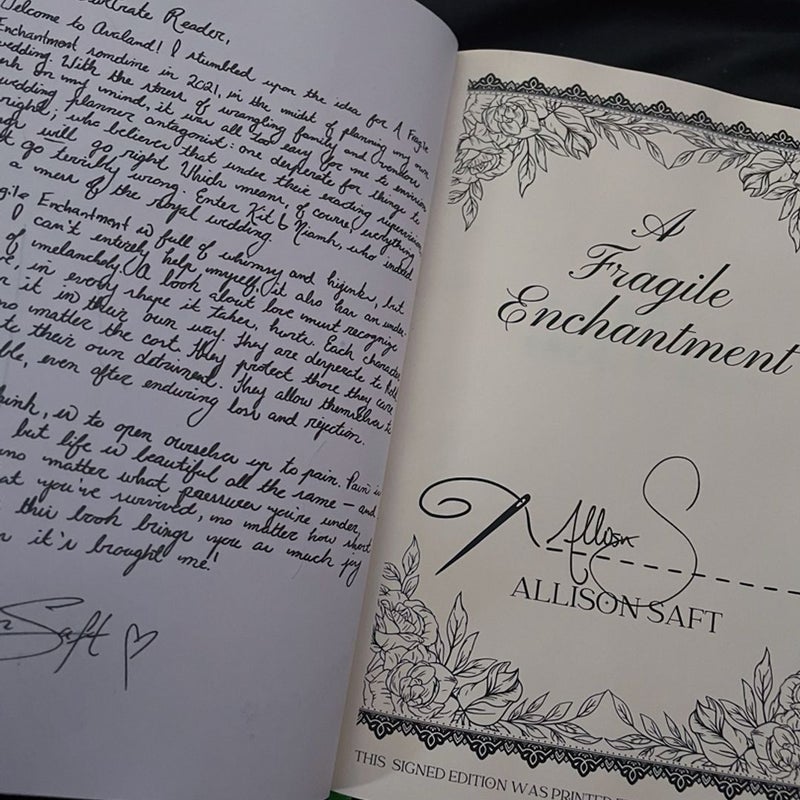 Reader,
Welcome to Avaland! I stumbled upon the idea for A Fragile
Enchantment sometime in 2021, in the midst of planning my own
wedding. With the stress of wrangling family and vendors
on my mind, it was all too easy for me to envision
wedding planner antagonist: one desperate for things to
right, who believes that under their exacting supervision,
will go right. Which means, of course, everything
go terribly wrong. Enter Kit & Niamh, who indeed
a mess of the royal wedding.
Enchantment is full of whimsy and hijinks, but
I can't entirely help myself, it also has an under-
of melancholy. A book about love must recognize
in every shape it takes, hurts. Each character
it in their own way. They are desperate to
no matter the cost. They protect those they care
to their own detriment. They allow themselves to
even after enduring loss and rejection.
think, is to open ourselves up to pain. Pain is
but life is beautiful all the same — and
no matter what pressures you're under,
what you've survived, no matter how
this book brings you as much joy
it's brought me!
Saft
A
Fragile
Enchantment
Allison S
ALLISON SAFT
THIS SIGNED EDITION WAS PRINTED